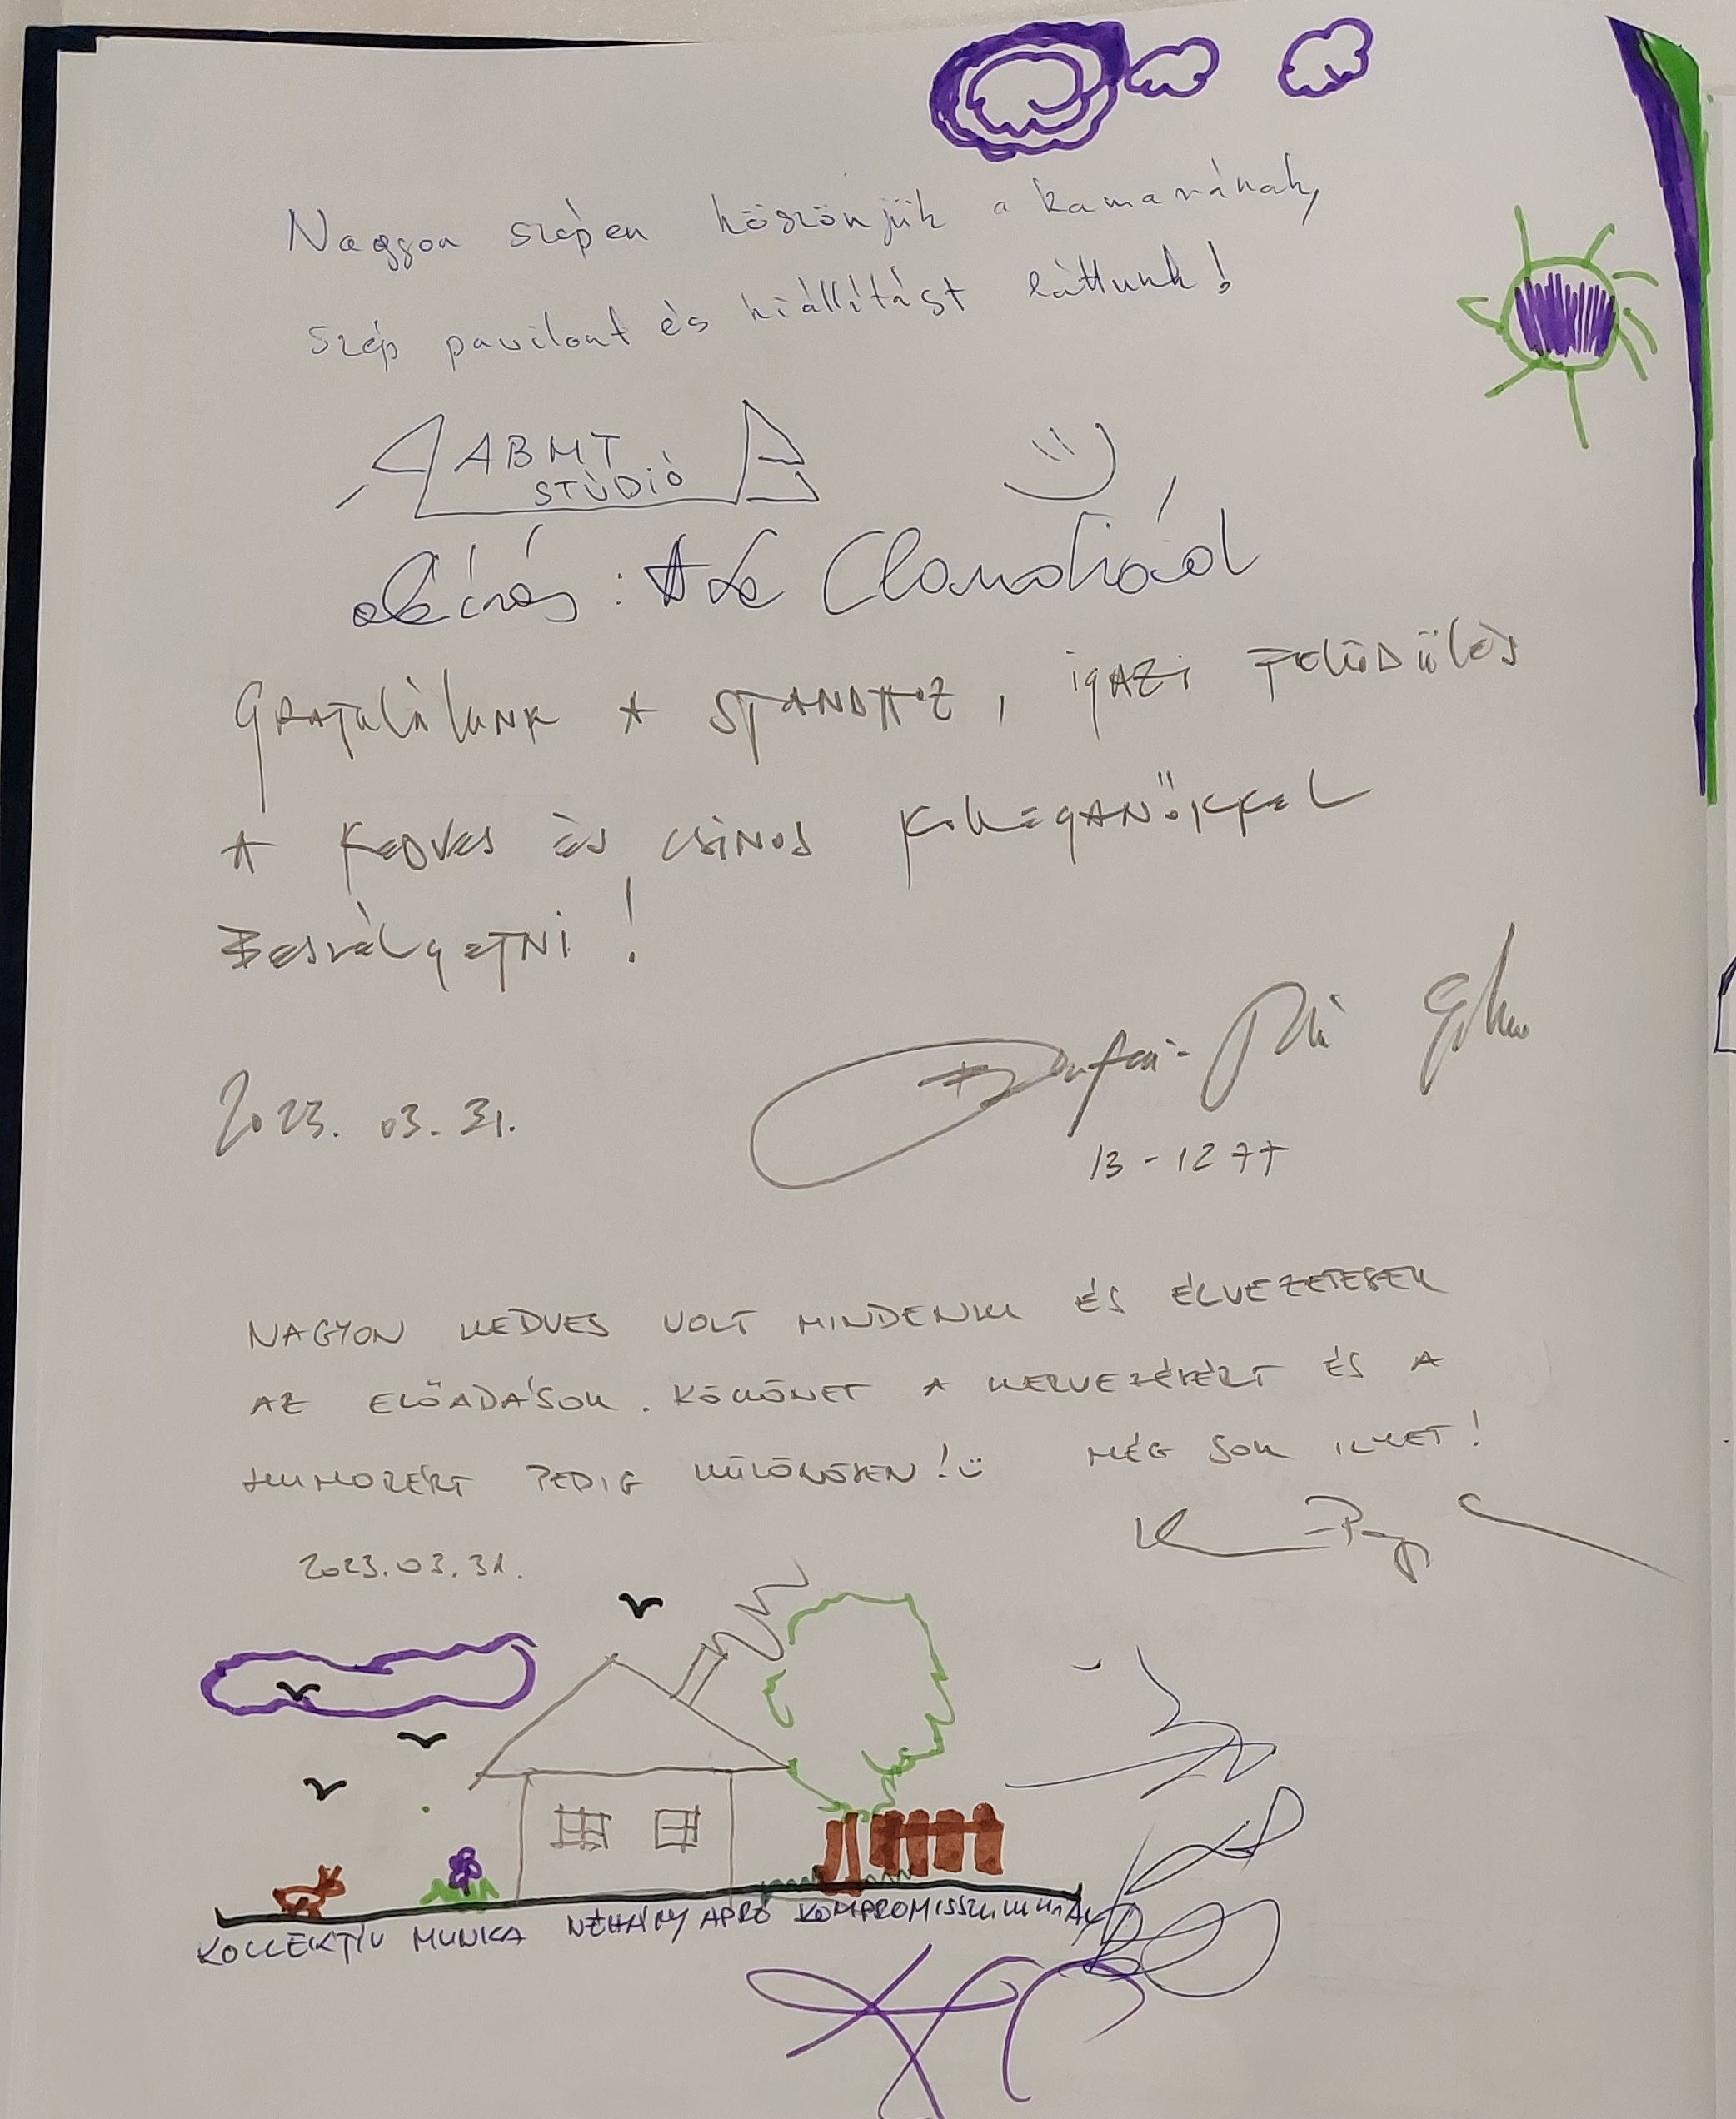 Nagyon szépen köszönjük a kamarának,
szép pavilont és kiállítást láttunk!
ABMT
STÚDIÓ
aláírás:
GRATULÁLUNK A STANDHOZ, IGAZI FELÜDÜLÉS
A KEDVES ÉS CSINOS KOLLEGANŐKKEL
BESZÉLGETNI!
2023. 03. 31.
13-1277
NAGYON KEDVES VOLT MINDENKI ÉS ÉLVEZETESEK
AZ ELŐADÁSOK. KÖSZÖNET A SZERVEZÉSÉRT ÉS A
HUMORÉRT PEDIG KÜLÖNÖSEN! MÉG SOK ILYET!
2023.03.31.
KOLLEKTÍV MUNKA NÉHÁNY APRÓ KOMPROMISSZUMMAL